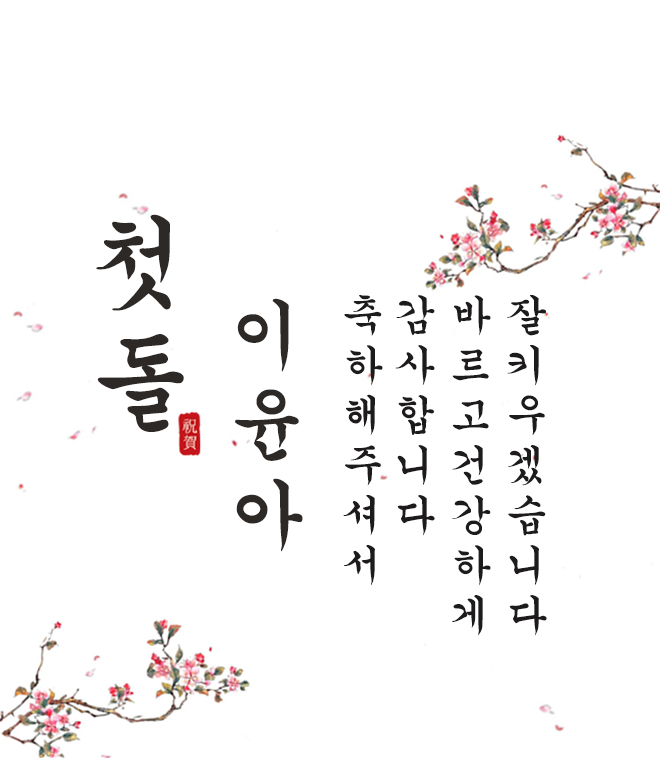 첫돌
祝賀
이윤아
축하해주셔서
감사합니다
바르고건강하게
잘키우겠습니다